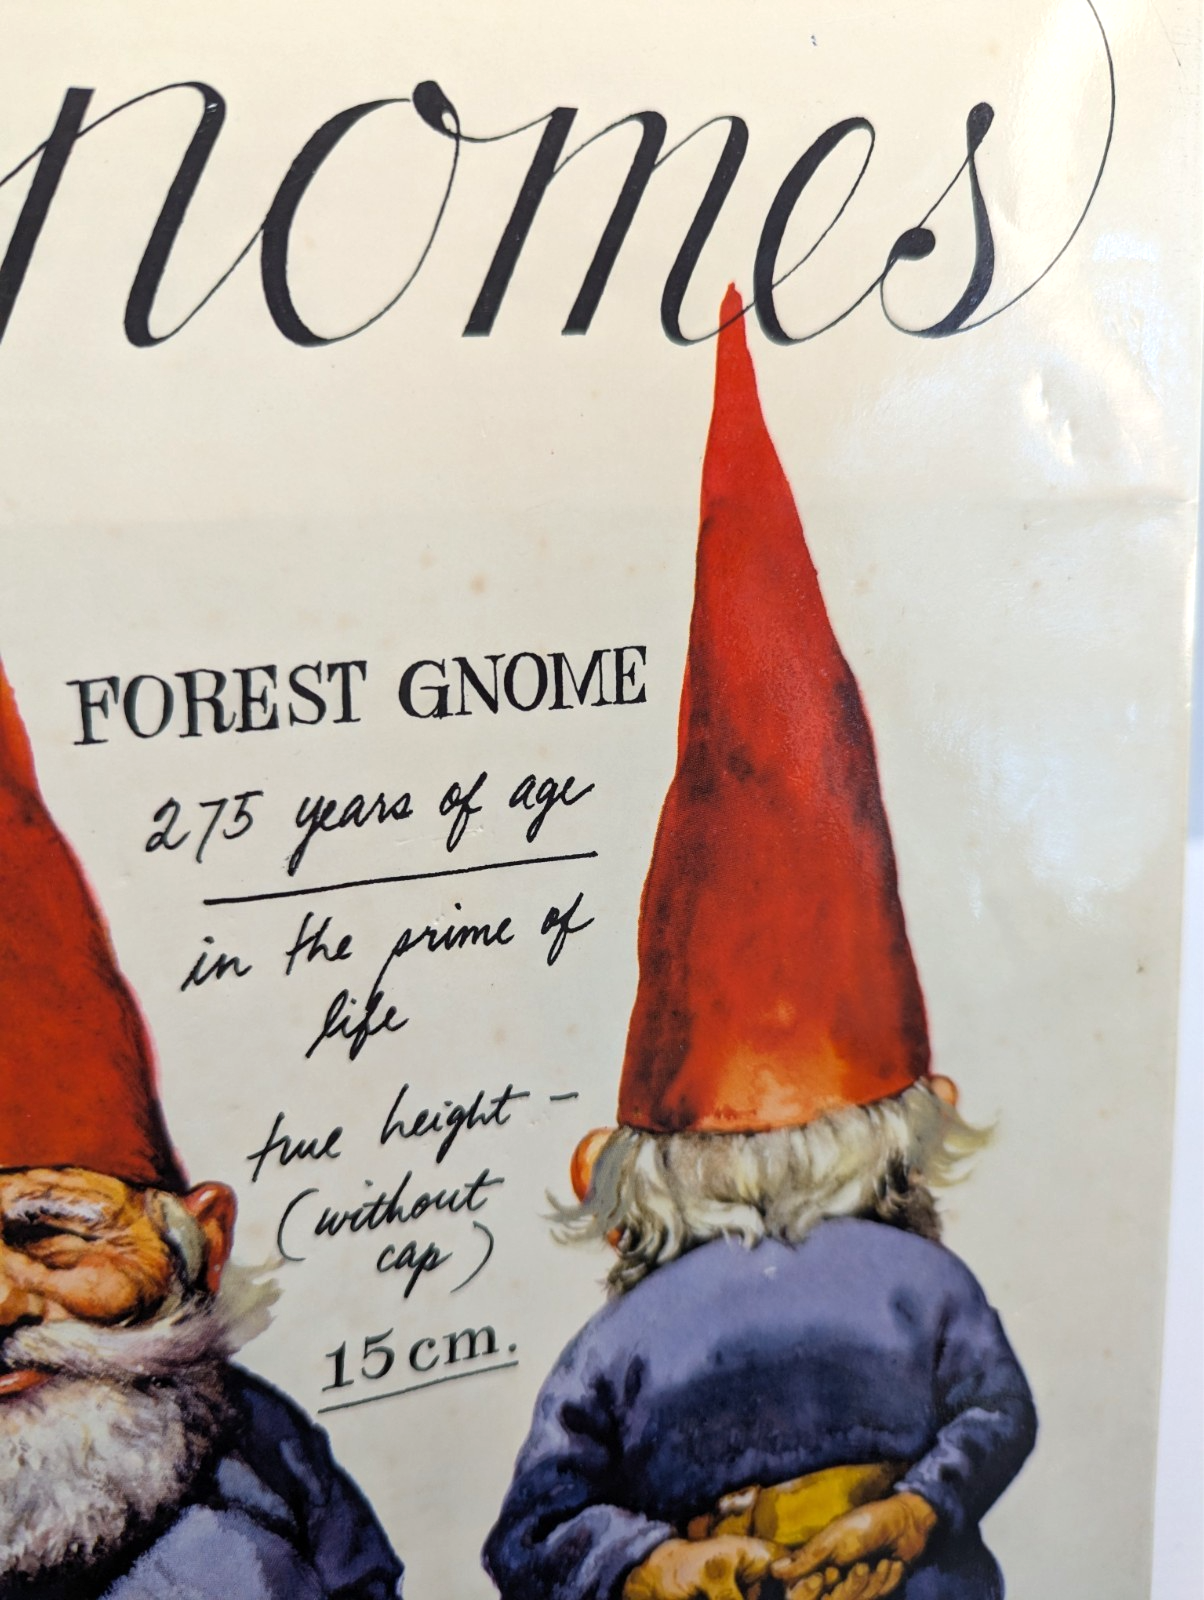 nomes
FOREST GNOME
275 years of age
in the prime of
life
true height -
(without
cap)
15 cm.